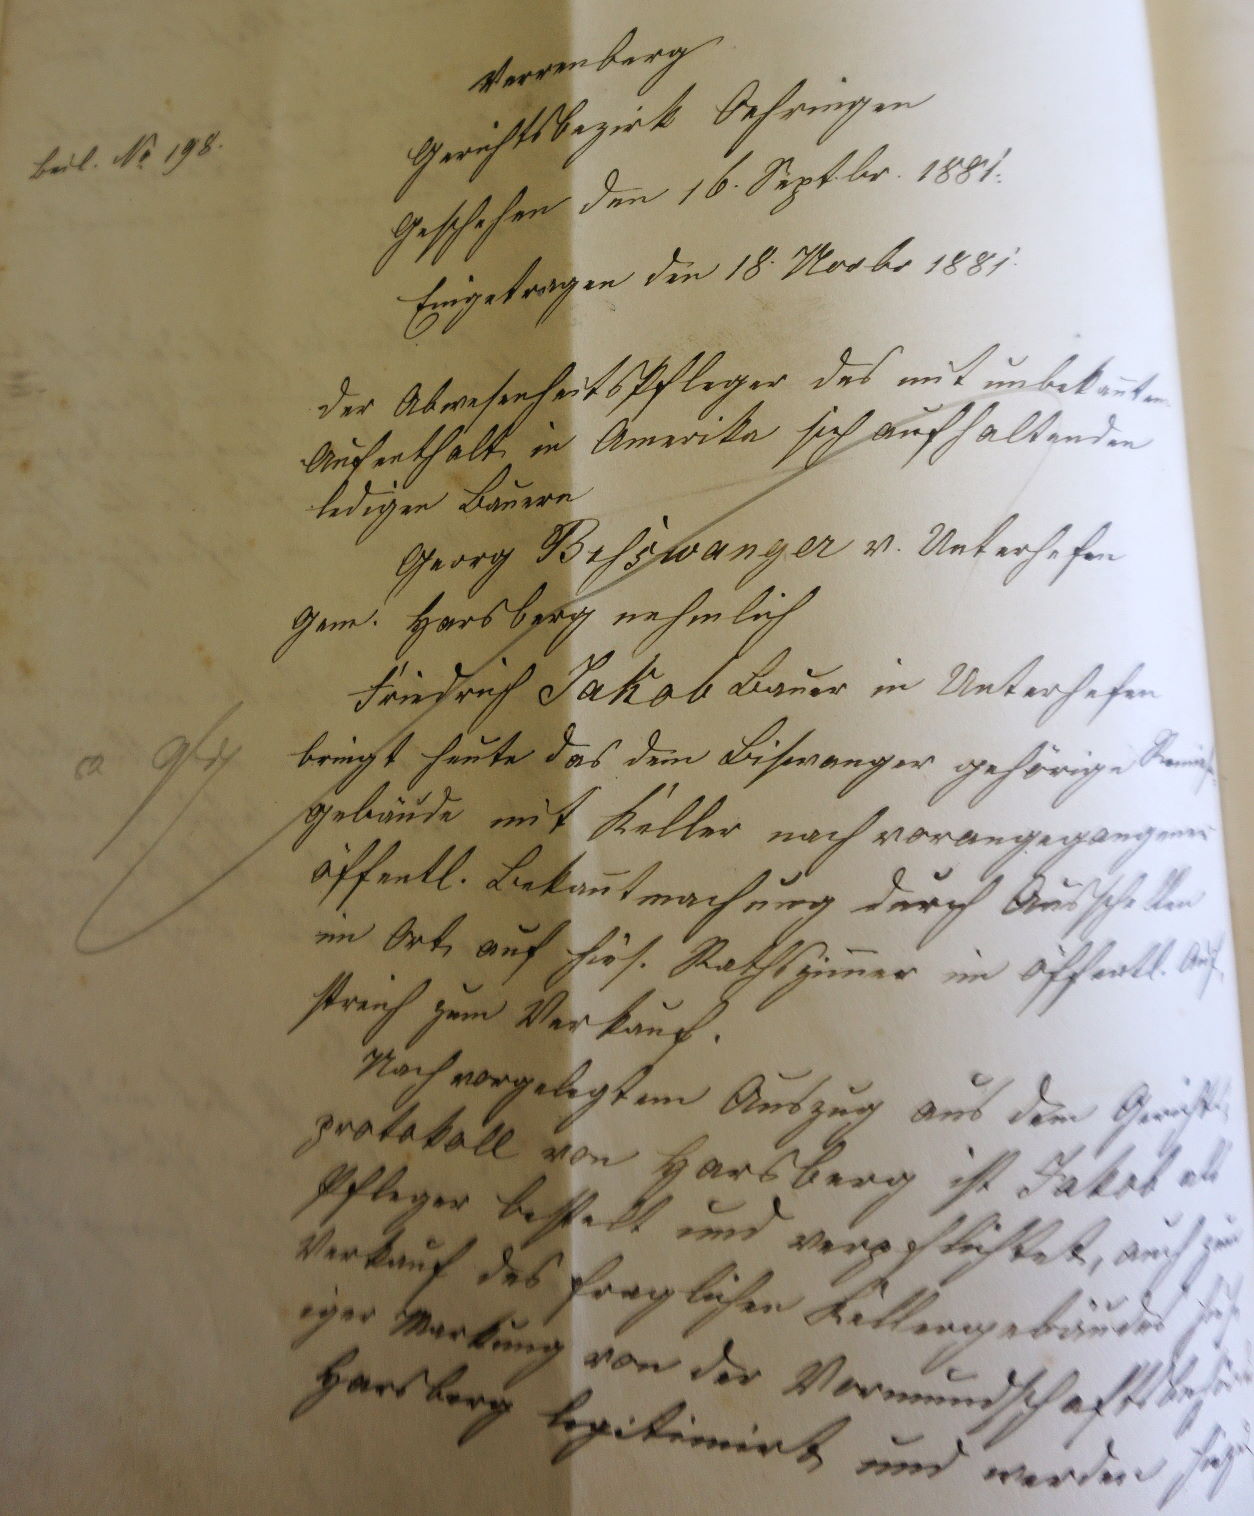 Verrenberg
Gerichtsbezirk Oehringen
Beil. No 198.
Geschehen den 16. Septbr. 1881.
Eingetragen den 18. Novbr 1881.
Der Abwesenheitspfleger des mit unbekañten
Aufenthalt in Amerika sich aufhaltenden
ledigen Bauern
Georg Beiswanger v. Unterhefen
Gem. Harsberg nehmlich
Friedrich Jakob Bauer in Unterhefen
bringt heute das dem Biswanger gehörige
gebäude mit Keller nach vorangegangener
öffentl. Bekañtmachung durch Ausschellen
im Ort auf hies. Rathszim̄er im öffentl. Auf
streich zum Verkauf.
Nach vorgelegtem Auszug aus dem Gerichts
protokoll von Harsberg ist Jakob als
Pfleger bestellt und verpflichtet, auch zum
Verkauf des fraglichen Kellergebäudes hies
iger Markung von der Vormundschaftsbehörde
Harsberg legitimirt und werden hiezu